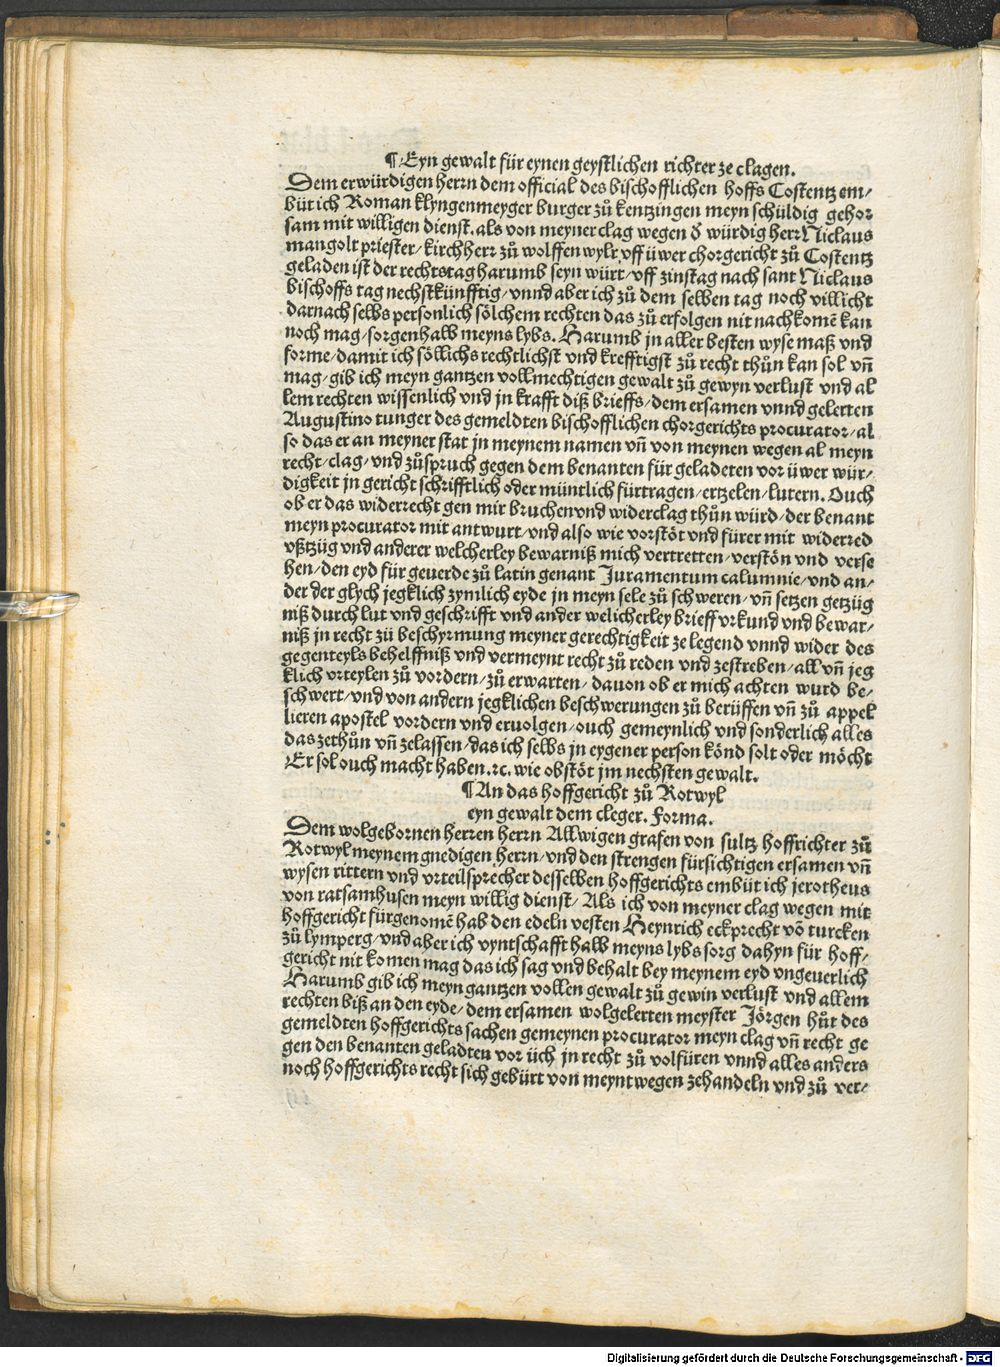 ¶ Eyn gewalt für eynen geystlichen richter ze clagen.
Dem erwürdigen herrn dem official des bischofflichen hoffs Costentz em/
büt ich Roman klyngenmeyger burger zů kentzingen meyn schüldig gehor
sam mit willigen dienst. als von meyner clag wegen d̄ würdig herr Niclaus
mangolt priester/ kirchherr zů wolffen wylr vff üwer chorgericht zů Costentz
geladen ist der rechtstag harumb seyn würt/ vff zinstag nach sant Niclaus
bischoffs tag nechstkünfftig/ vnnd aber ich zů dem selben tag noch villicht
darnach selbs personlich sölchem rechten das zů erfolgen nit nachkomē kan
noch mag/ sorgenhalb meyns lybs. Harumb jn aller besten wyse maß vnd
forme/ damit ich söllichs rechtlichst vnd krefftigst zů recht thůn kan sol vn̄
mag/ gib ich meyn gantzen vollmechtigen gewalt zů gewyn verlust vnd al
lem rechten wissenlich vnd jn krafft diß brieffs/ dem ersamen vnnd gelerten
Augustino tunger des gemeldten bischofflichen chorgerichts procurator/ al
so das er an meyner stat jn meynem namen vn̄ von meynen wegen al meyn
recht/ clag/ vnd zůspruch gegen dem benanten für geladeten vor üwer wür/
digkeit jn gericht schrifftlich oder müntlich fürtragen/ ertzelen/ lutern. Ouch
ob er das widerrecht gen mir bruchen vnd widerclag thůn würd/ der benant
meyn procurator mit antwurt/ vnd also wie vorstöt vnd fürer mit widerred
vßtzüg vnd anderer welcherley bewarniß mich vertretten/ verstön vnd verse
hen/ den eyd für geuerde zů latin genant Juramentum calumnie/ vnd an/
der der glych jegklich zymlich eyde jn meyn sele zů schweren/ vn̄ setzen getzüg
niß durch lut vnd geschrifft vnd ander welicherley brieff vrkund vnd bewar/
niß jn recht zü beschyrmung meyner gerechtigkeit ze legend vnnd wider des
gegenteyls behelffniß vnd vermeynt recht zů reden vnd zestreben/ all vn̄ jeg
klich vrteylen zů vordern/ zů erwarten/ dauon ob er mich achten wurd be/
schwert/ vnd von andern jegklichen beschwerungen zů berüffen vn̄ zů appel
lieren apostel vordern vnd eruolgen/ ouch gemeynlich vnd sonderlich alles
das zethůn vn̄ zelassen/ das ich selbs jn eygener person könd solt oder möcht
Er sol ouch macht haben. ꝛc. wie obstöt jm nechsten gewalt.
¶ An das hoffgericht zů Rotwyl
eyn gewalt dem cleger. Forma.
Dem wolgebornen herren herrn Allwigen grafen von sultz hoffrichter zů
Rotwyl meynem gnedigen herrn/ vnd den strengen fürsichtigen ersamen vn̄
wysen rittern vnd vrteilsprecher desselben hoffgerichts embüt ich jerotheus
von ratsamhusen meyn willig dienst/ Als ich von meyner clag wegen mit
hoffgericht fürgenomē hab den edeln vesten Heynrich eckprecht vō turcken
zů lymperg/ vnd aber ich vyntschafft halb meyns lybs sorg dahyn für hoff/
gericht nit komen mag das ich sag vnd behalt bey meynem eyd vngeuerlich
Harumb gib ich meyn gantzen vollen gewalt zů gewin verlust vnd allem
rechten biß an den eyde/ dem ersamen wolgelerten meyster Jörgen hůt des
gemeldten hoffgerichts sachen gemeynen procurator meyn clag vn̄ recht ge
gen den benanten geladten vor üch jn recht zů volfüren vnnd alles anders
noch hoffgerichts recht sich gebürt von meynt wegen zehandeln vnd zů ver/
Digitalisierung gefördert durch die Deutsche Forschungsgemeinschaft - DFG